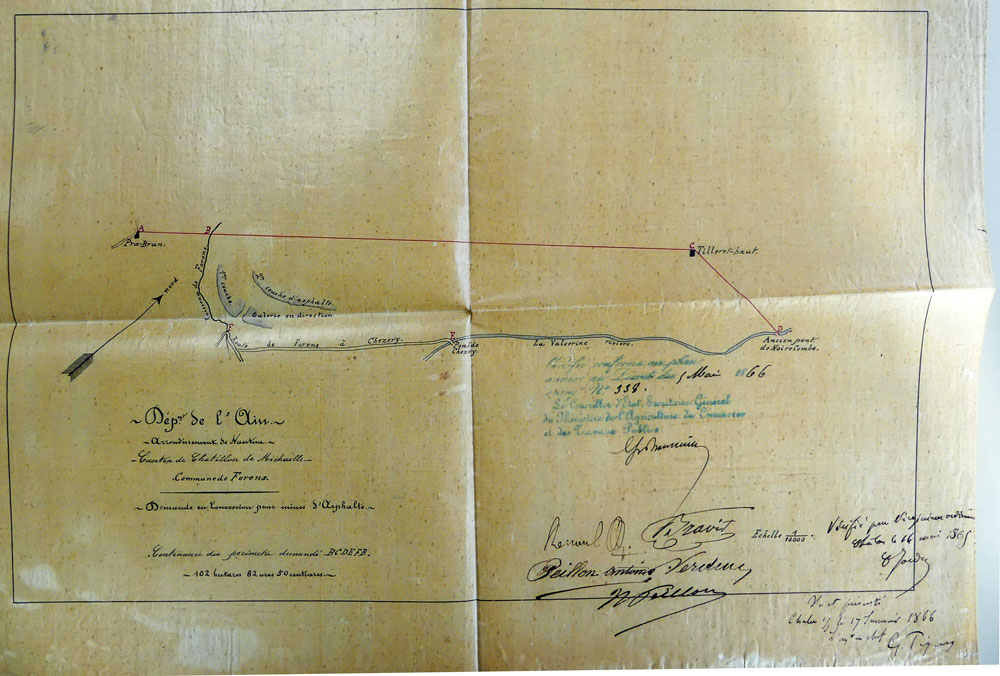 A
B
Pra-Brun.
C
Tilleret-haut.
nord
Ruisseau de Forens
1re couche
2e couche d'asphalte.
Galerie en direction
F
Route de Forens à Chezery.
E
Pont de
Chezery.
La Valserine rivière.
D
Ancien pont
de Noirecombe.
~ Dépt de l'Ain ~
~ Arrondissement de Nantua ~
~ Canton de Chatillon de Michaille ~
Commune de Forens.
~ Demande en Concession pour mines d'Asphalte ~
Contenance du périmètre demandé BCDEFB.
~ 102 hectares 82 ares 50 centiares ~
conforme au plan
annexé au Décret du 5 Mai 1866
Nº 338.
Le Conseiller d'Etat, Secrétaire Général
du Ministère de l'Agriculture du Commerce
et des Travaux Publics
Travis
Echelle 1/10000.
Peillon antoine
Vérifié par
le 16 mai 1865
Vu et présenté
le 17 Janvier 1866